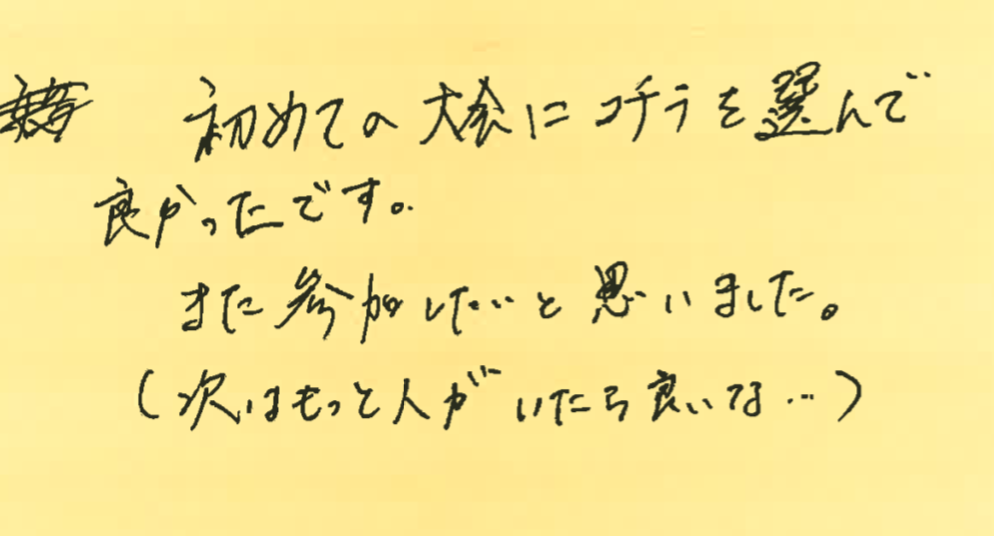 初めての大会にコチラを選んで
良かったです。
また参加したいと思いました。
(次はもっと人がいたら良いな…)